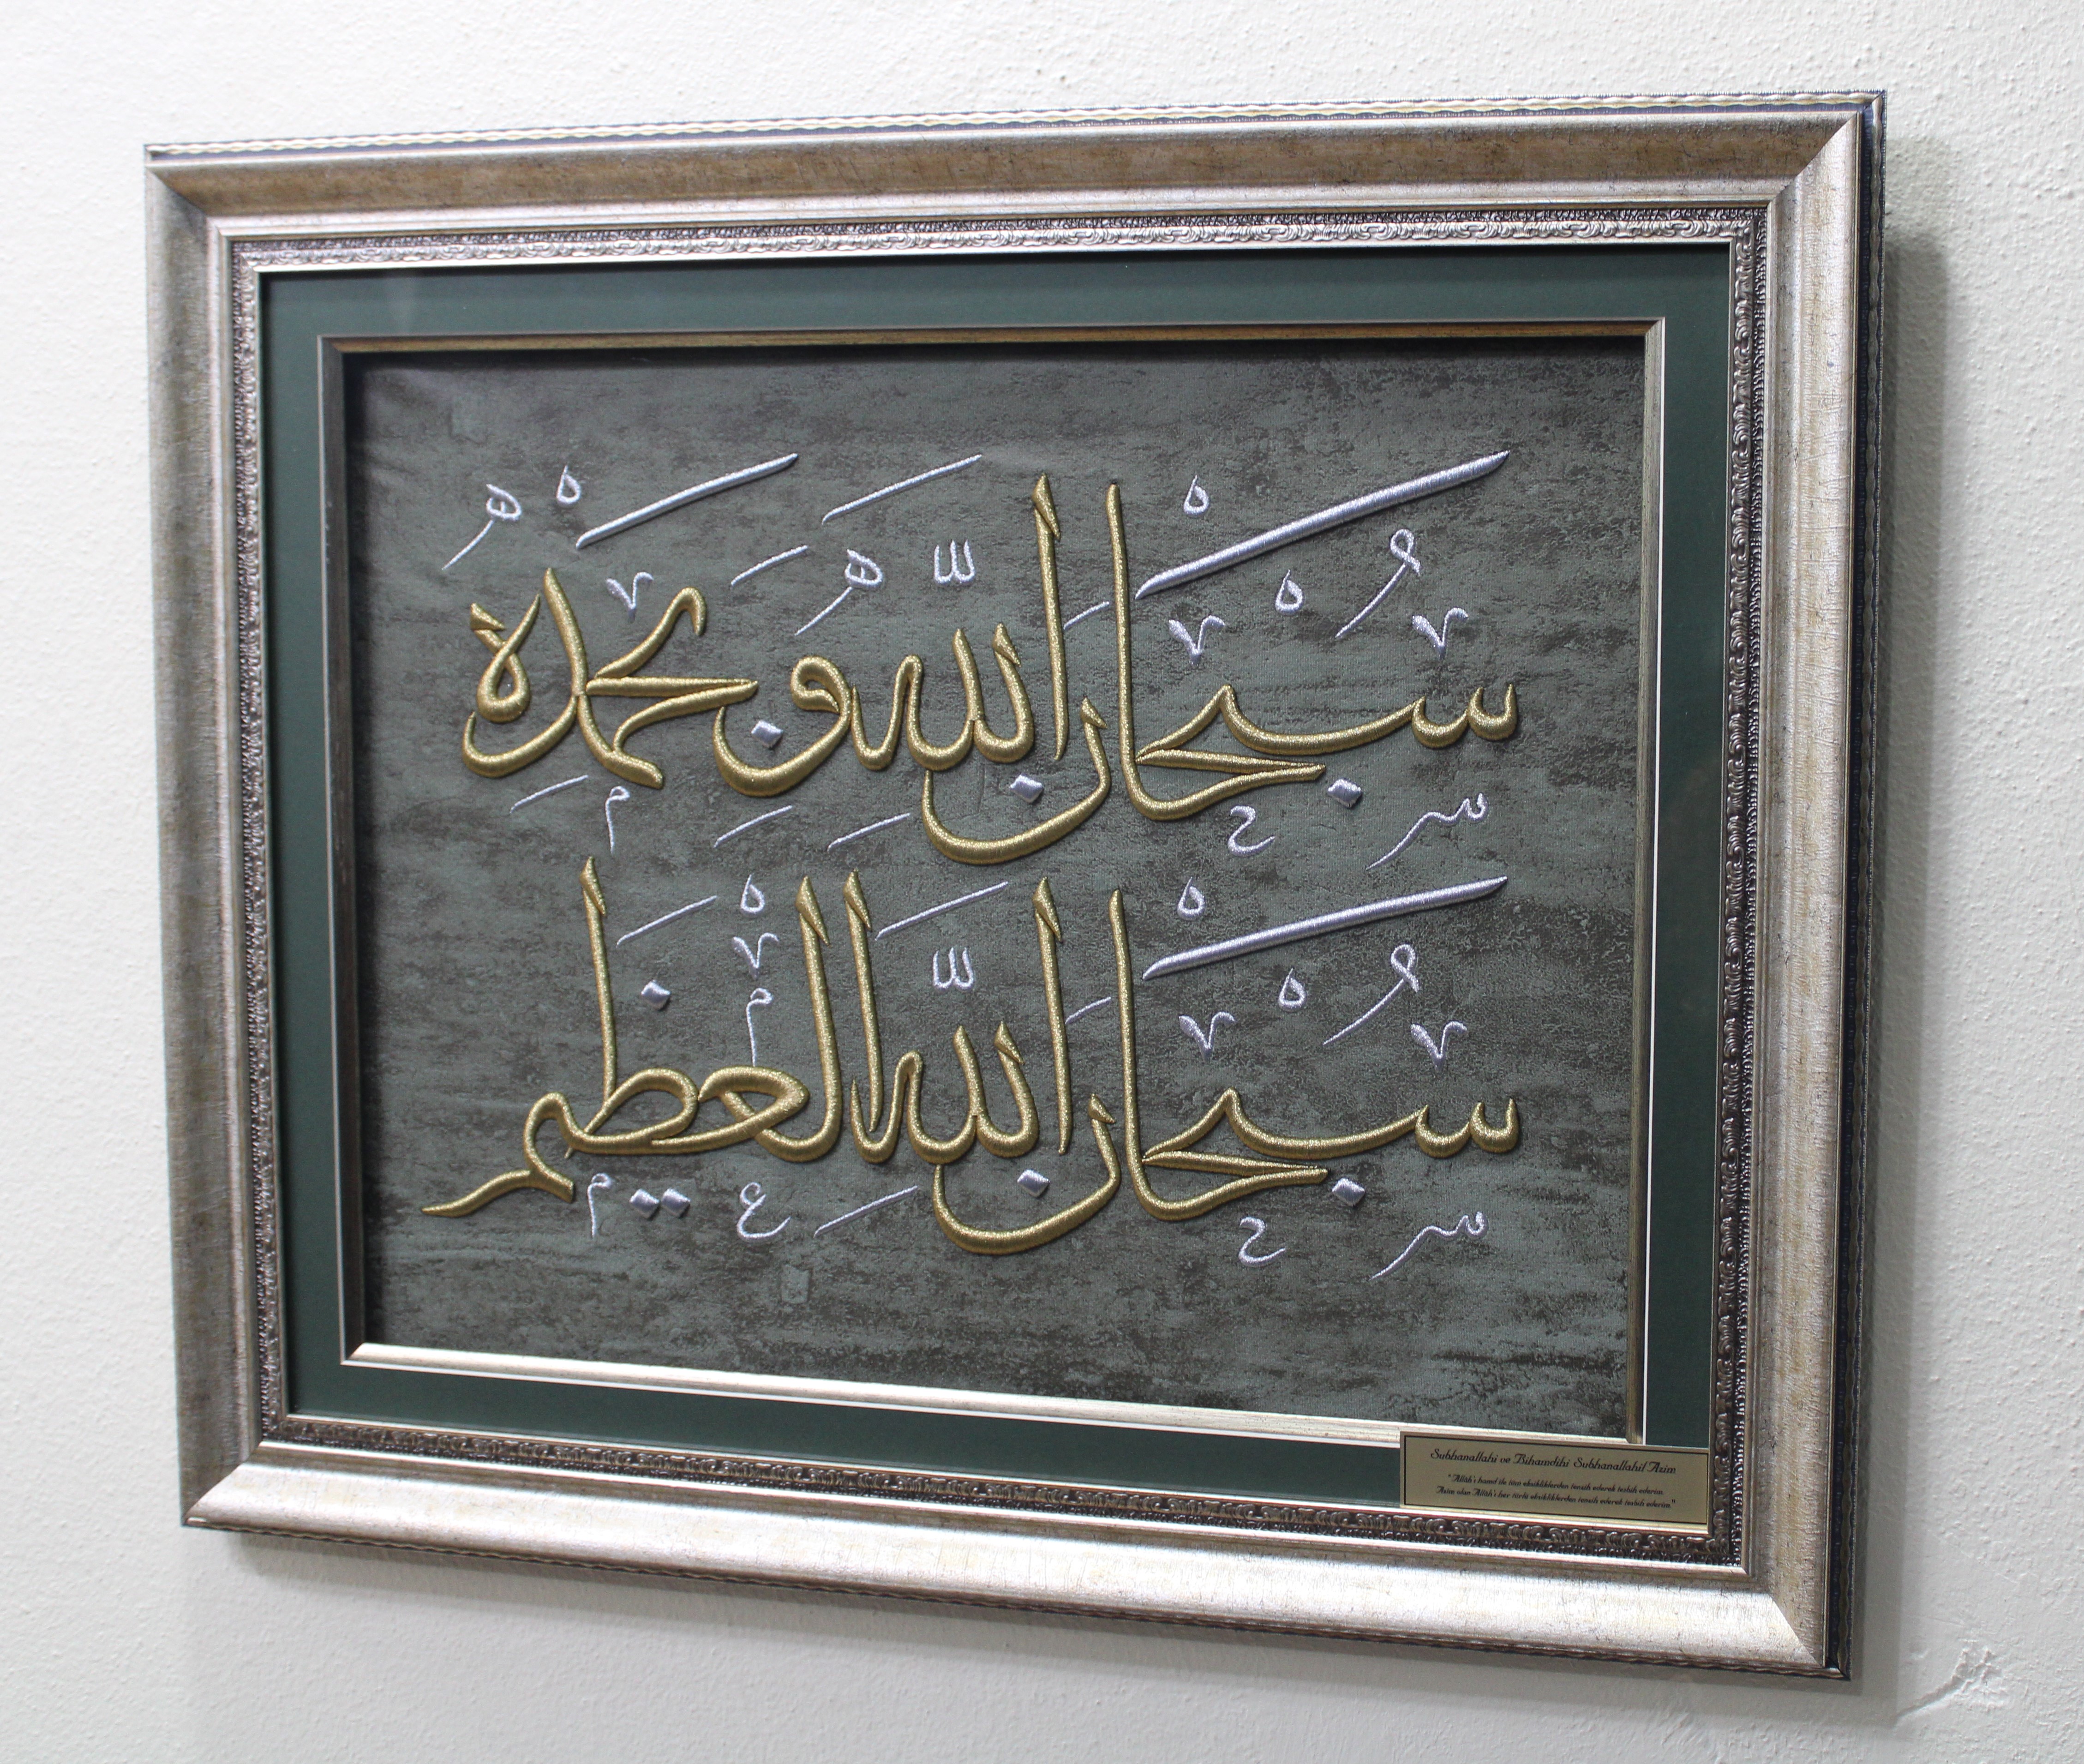 سُبْحَانَ اللّٰهِ وَبِحَمْدِهِ
سُبْحَانَ اللّٰهِ الْعَظِيمِ
Subhanallahi ve Bihamdihi Subhanallahil Azim
"Allâh'ı hamd ile tüm eksikliklerden tenzih ederek tesbih ederim.
Azim olan Allâh'ı her türlü eksikliklerden tenzih ederek tesbih ederim"